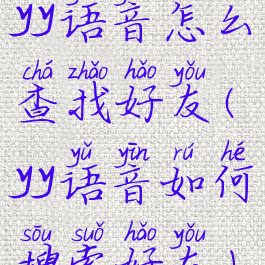 yy语音怎么
chá zhǎo hǎo yǒu
查找好友(
yǔ yīn rú hé
yy语音如何
sōu suǒ hǎo yǒu
搜索好友)